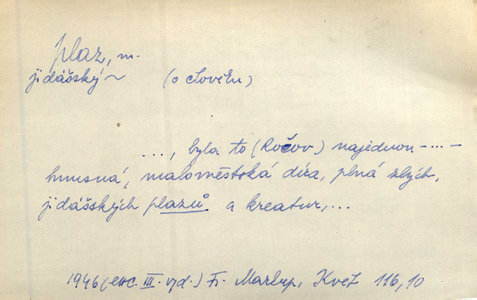 plaz, m.
jidášský ~ (o člověku)
..., byla to (Ročov) najednou - ... -
hnusná, maloměstská díra, plná zlých,
jidášských plazů a kreatur, ...
1946 (exc. III. vyd.) Fr. Marlup, Květ 116, 10